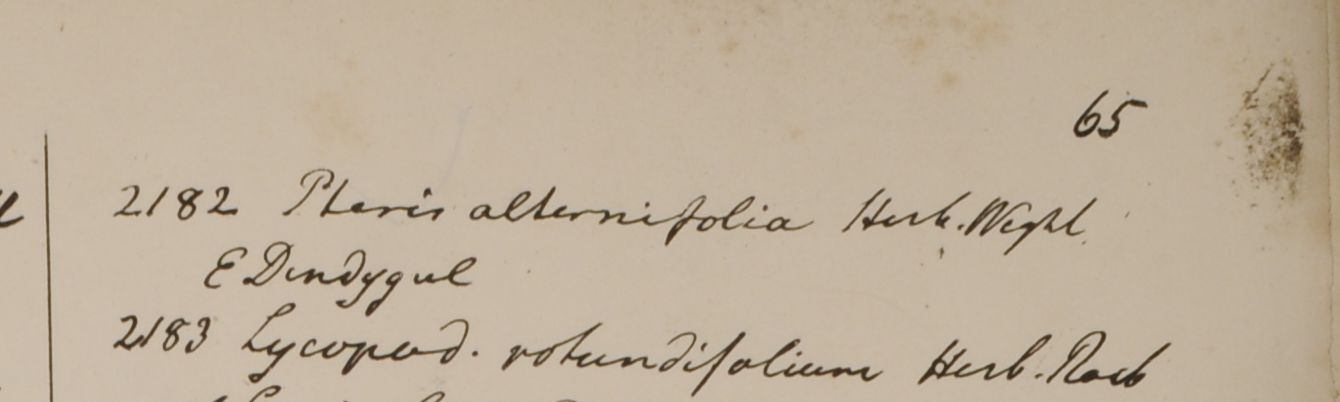 65
2182 Pteris alternifolia Herb. Wight
E Dindygul
2183 Lycopod. rotundifolium Herb. Roxb